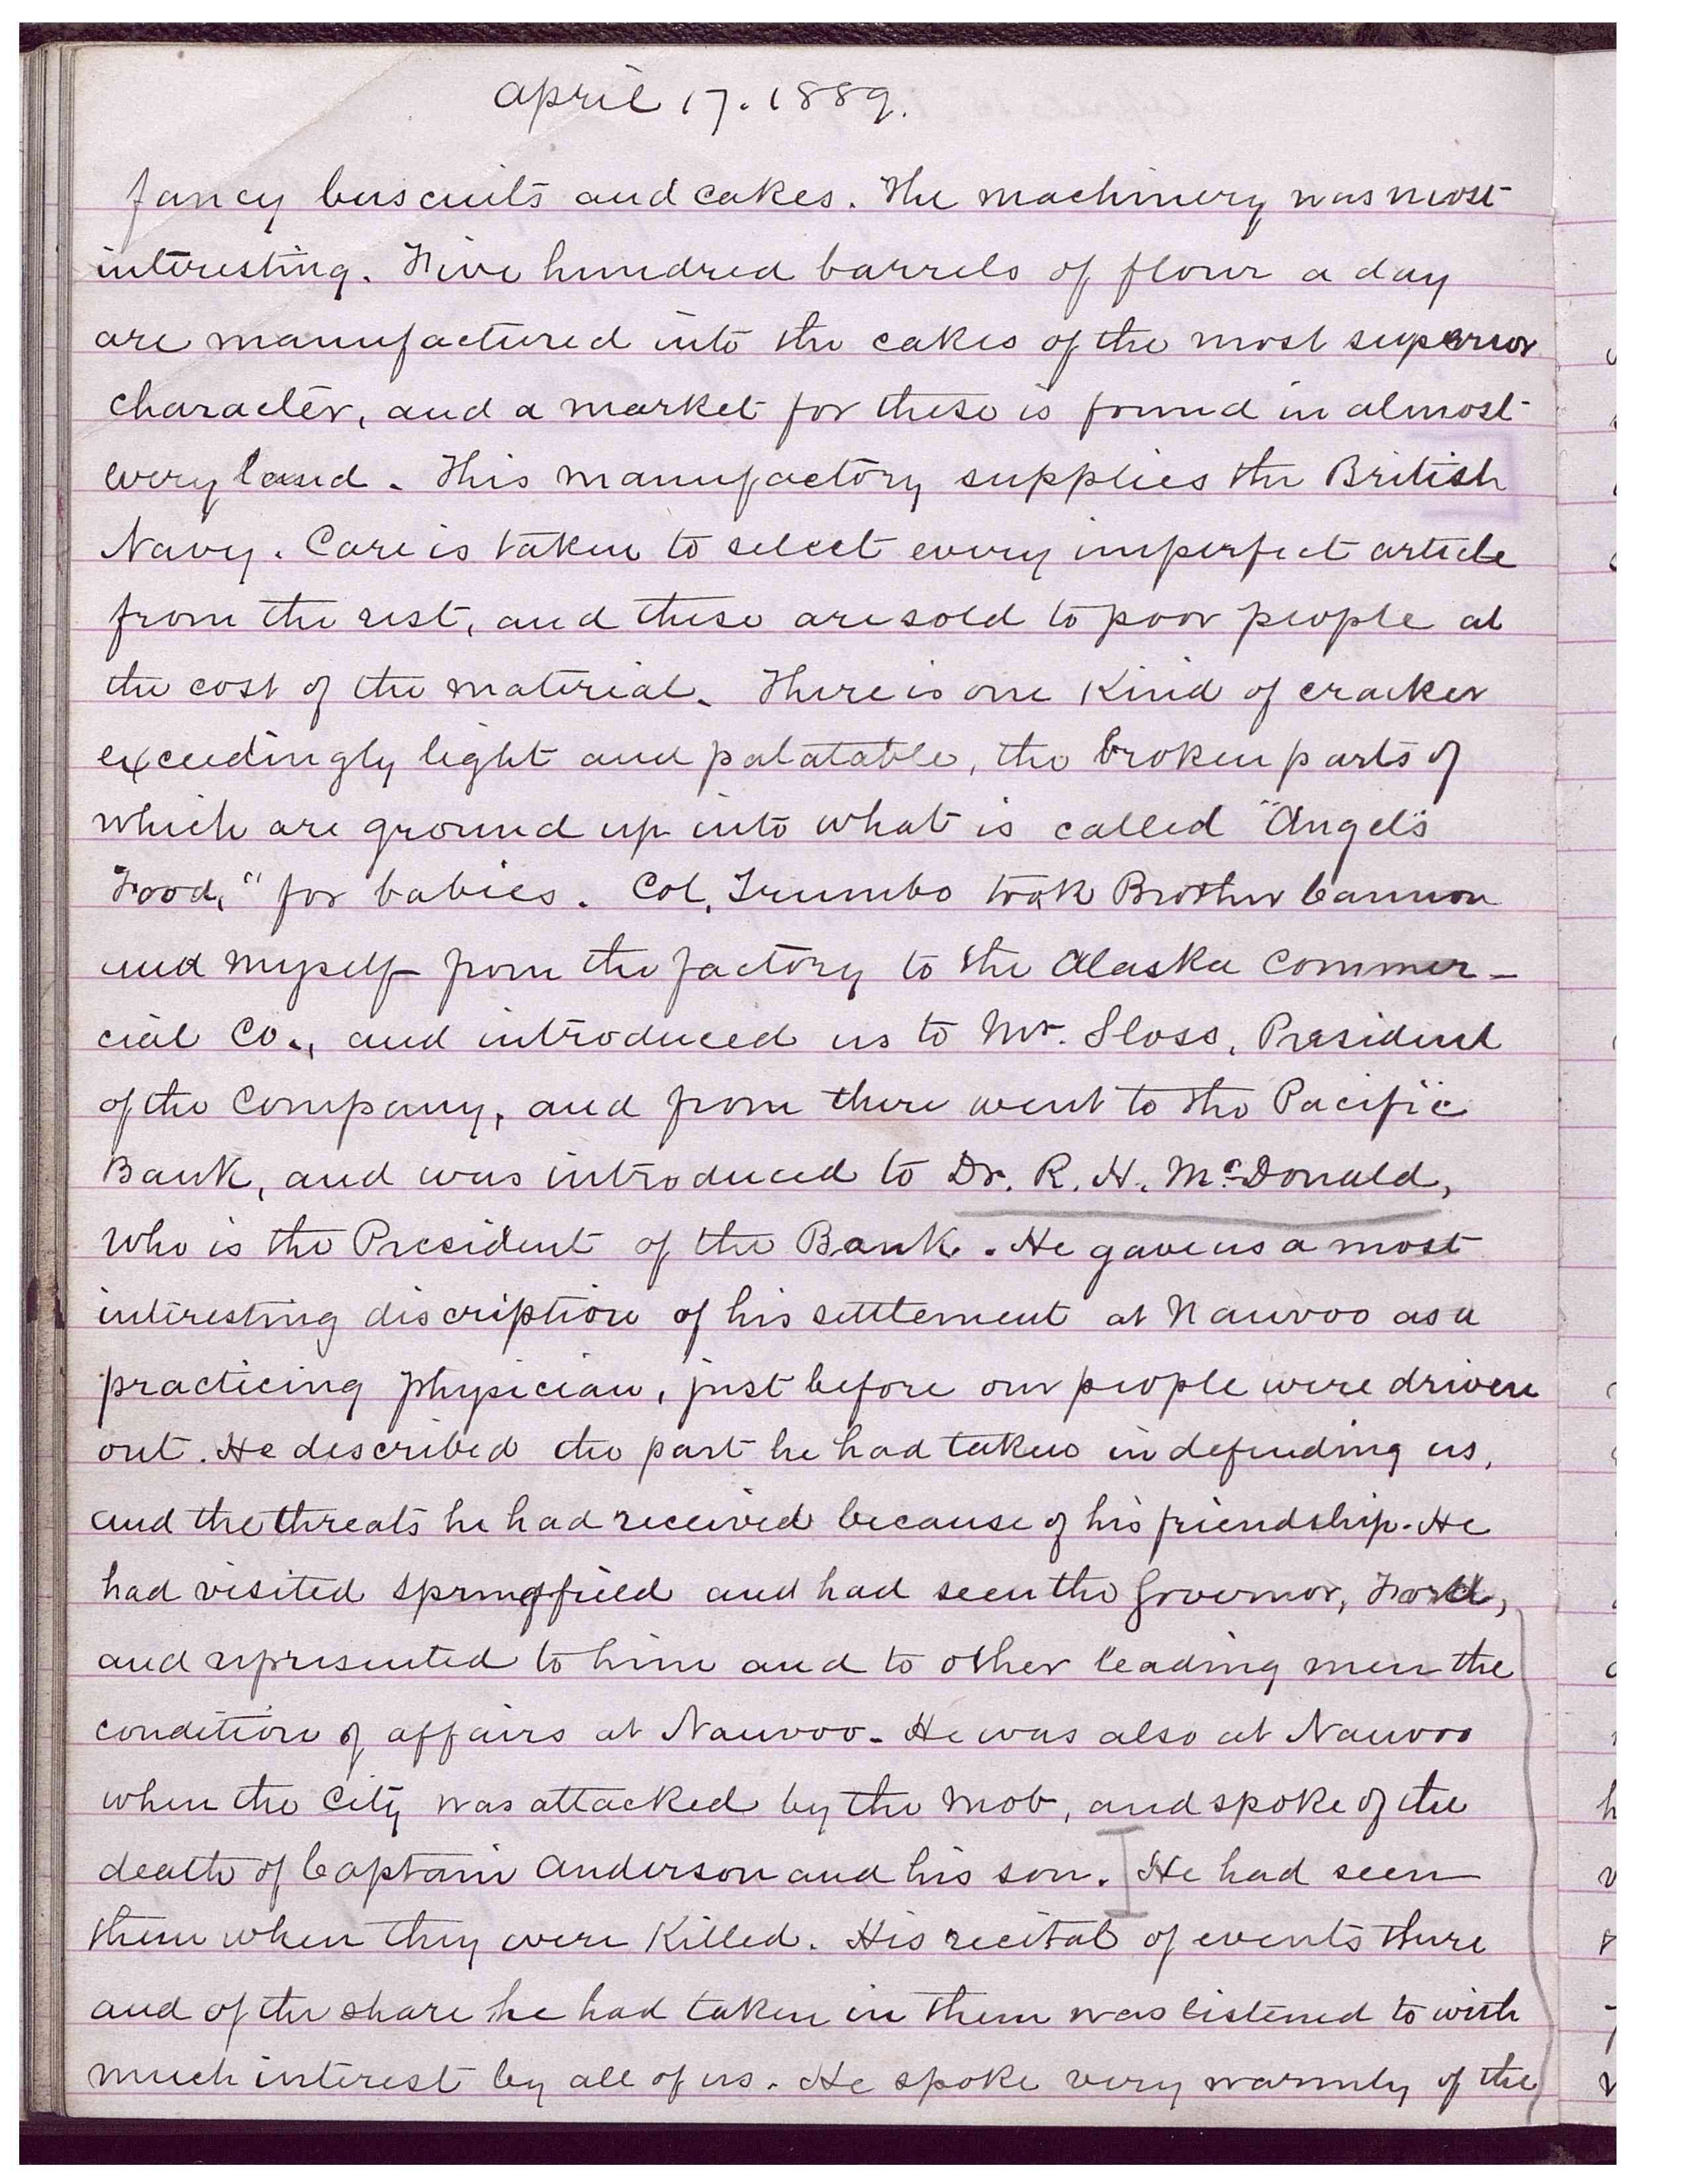 april 17. 1889.
fancy buscuits and cakes. The machinery was most
interesting. Five hundred barrels of flour a day
are manufactured into the cakes of the most superior
character, and a market for these is found in almost
every land. This manufactory supplies the British
Navy. Care is taken to select every imperfect article
from the rest, and these are sold to poor people at
the cost of the material. There is one kind of cracker
exceedingly light and palatable, the broken parts of
which are ground up into what is called "Angel's
Food," for babies. Col. Trumbo took Brother Cannon
and myself from the factory to the Alaska Commer-
cial Co., and introduced us to Mr. Sloss, President
of the Company, and from there went to the Pacific
Bank, and was introduced to Dr. R. H. McDonald,
who is the President of the Bank. He gave us a most
interesting discription of his settlement at Nauvoo as a
practicing physician, just before our people were driven
out. He described the part he had taken in defending us,
and the threats he had received because of his friendship. He
had visited Springfield and had seen the Governor, Ford,
and represented to him and to other leading men the
condition of affairs at Nauvoo. He was also at Nauvoo
when the City was attacked by the mob, and spoke of the
death of Captain Anderson and his son. He had seen
them when they were killed. His recital of events there
and of the share he had taken in them was listened to with
much interest by all of us. He spoke very warmly of the